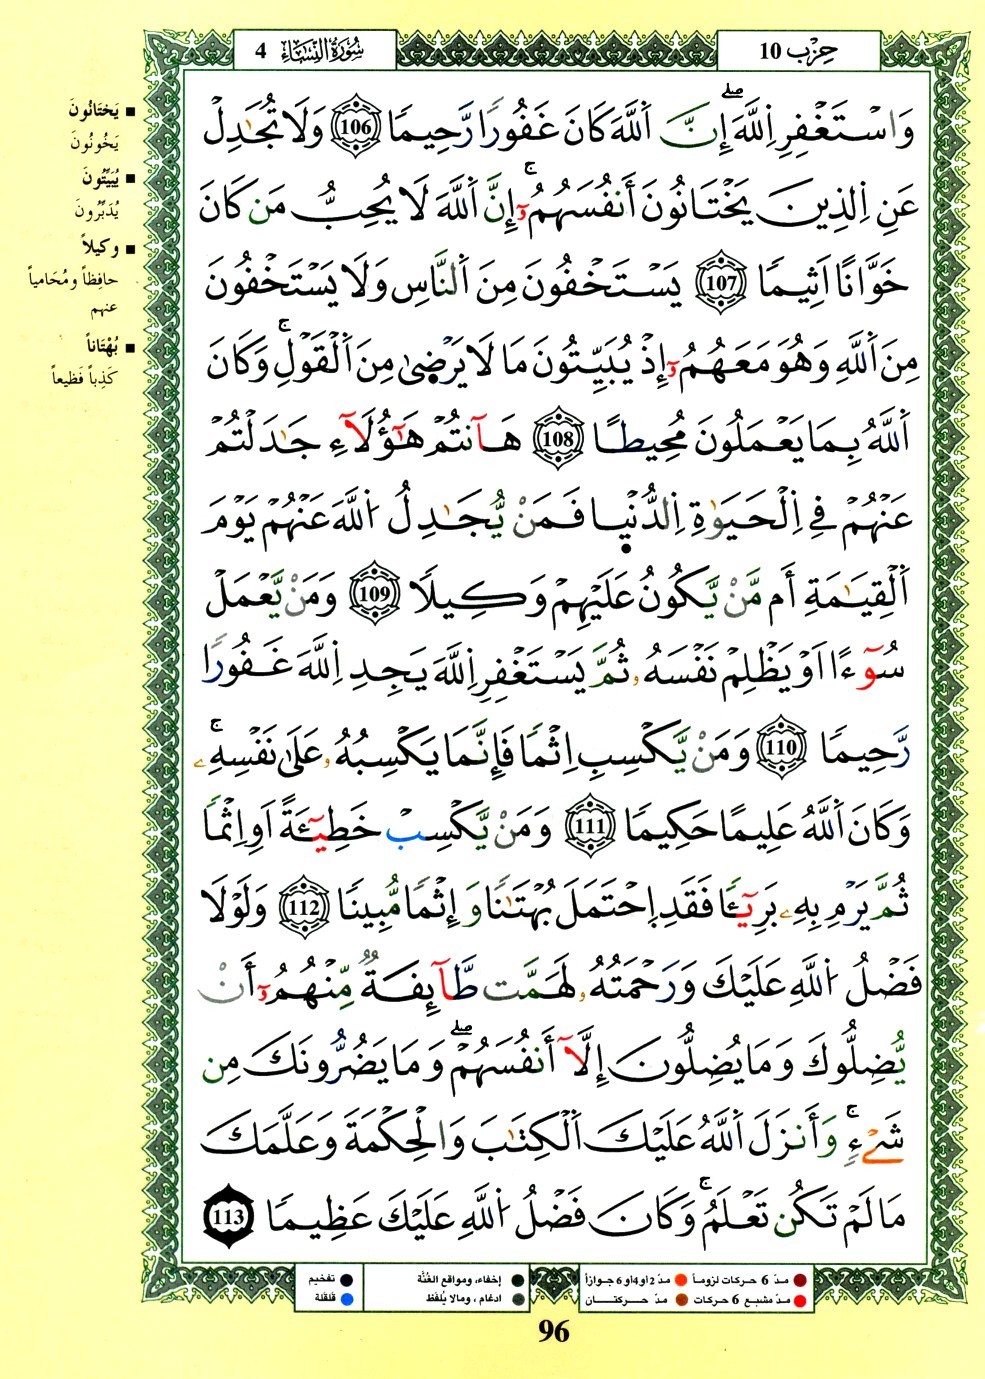 حِزْب 10
سُورَةُ النِّسَاءِ 4
وَاسْتَغْفِرِ اِ۬للَّهَۖ إِنَّ اَ۬للَّهَ كَانَ غَفُورًا رَّحِيمًا 106 وَلَا تُجَٰدِلْ
عَنِ اِ۬لذِينَ يَخْتَانُونَ أَنفُسَهُمُۥٓۚ إِنَّ اَ۬للَّهَ لَا يُحِبُّ مَن كَانَ
خَوَّانًا اَثِيمًا 107 يَسْتَخْفُونَ مِنَ اَ۬لنَّاسِ وَلَا يَسْتَخْفُونَ
مِنَ اَ۬للَّهِ وَهُوَ مَعَهُمُۥٓ إِذْ يُبَيِّتُونَ مَا لَا يَرْضَىٰ مِنَ اَ۬لْقَوْلِۚ وَكَانَ
اَ۬للَّهُ بِمَا يَعْمَلُونَ مُحِيطًا 108 هَآنتُمْ هَٰٓؤُلَآءِ جَٰدَلْتُمْ
عَنْهُمْ فِي اِ۬لْحَيَوٰةِ اِ۬لدُّنْيا فَمَنْ يُّجَٰدِلُ اُ۬للَّهَ عَنْهُمْ يَوْمَ
اَ۬لْقِيَٰمَةِ أَم مَّنْ يَّكُونُ عَلَيْهِمْ وَكِيلًا 109 وَمَنْ يَّعْمَلْ
سُوٓءًا اَوْ يَظْلِمْ نَفْسَهُۥ ثُمَّ يَسْتَغْفِرِ اِ۬للَّهَ يَجِدِ اِ۬للَّهَ غَفُورًا
رَّحِيمًا 110 وَمَنْ يَّكْسِبِ اِثْمًا فَإِنَّمَا يَكْسِبُهُۥ عَلَىٰ نَفْسِهِۦۚ
وَكَانَ اَ۬للَّهُ عَلِيمًا حَكِيمًا 111 وَمَنْ يَّكْسِبْ خَطِيٓـَٔةً اَوِ اِثْمًا
ثُمَّ يَرْمِ بِهِۦ بَرِيٓـًٔا فَقَدِ اِ۪حْتَمَلَ بُهْتَٰنًا وَإِثْمًا مُّبِينًا 112 وَلَوْلَا
فَضْلُ اُ۬للَّهِ عَلَيْكَ وَرَحْمَتُهُۥ لَهَمَّت طَّآئِفَةٌ مِّنْهُمُۥٓ أَنْ
يُّضِلُّوكَ وَمَا يُضِلُّونَ إِلَّآ أَنفُسَهُمْۖ وَمَا يَضُرُّونَكَ مِن
شَيْءٍۚ وَأَنزَلَ اَ۬للَّهُ عَلَيْكَ اَ۬لْكِتَٰبَ وَالْحِكْمَةَ وَعَلَّمَكَ
مَا لَمْ تَكُن تَعْلَمُۚ وَكَانَ فَضْلُ اُ۬للَّهِ عَلَيْكَ عَظِيمًا 113
■ يَختَانُونَ
يَخُونُونَ
■ يُبَيِّتُونَ
يُدَبِّرُونَ
■ وكيلاً
حافِظاً ومُحَامِياً
عنهم
■ بُهْتَاناً
كَذِباً فَظيعاً
مدّ 6 حركات لزوماً
مدّ 2 أو 4 أو 6 جوازاً
إخفاء، ومواقع الغُنَّة
تفخيم
مدّ مشبع 6 حركات
مدّ حركتـــان
ادغام، ومالا يُلفَظ
قلقلة
96